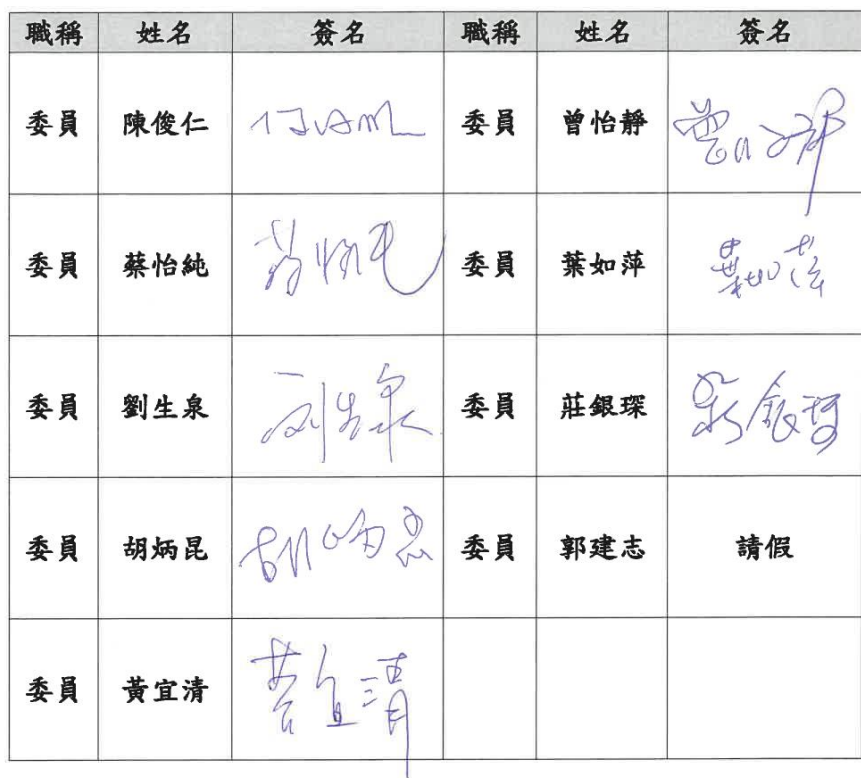 職稱 姓名 簽名 職稱 姓名 簽名
委員 陳俊仁 委員 曾怡靜
委員 蔡怡純 委員 葉如萍 葉如萍
委員 劉生泉 刘生泉 委員 莊銀琛
委員 胡炳昆 委員 郭建志 請假
委員 黃宜清 黃宜清